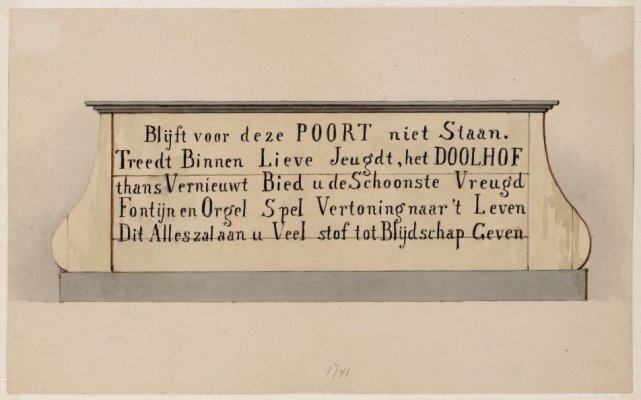 Blijft voor deze POORT niet Staan.
Treedt Binnen Lieve Jeugdt, het DOOLHOF
thans Vernieuwt Bied u de Schoonste Vreugd
Fontijn en Orgel Spel Vertoning naar 't Leven
Dit Alles zal aan u Veel stof tot Blijdschap Geven
1741